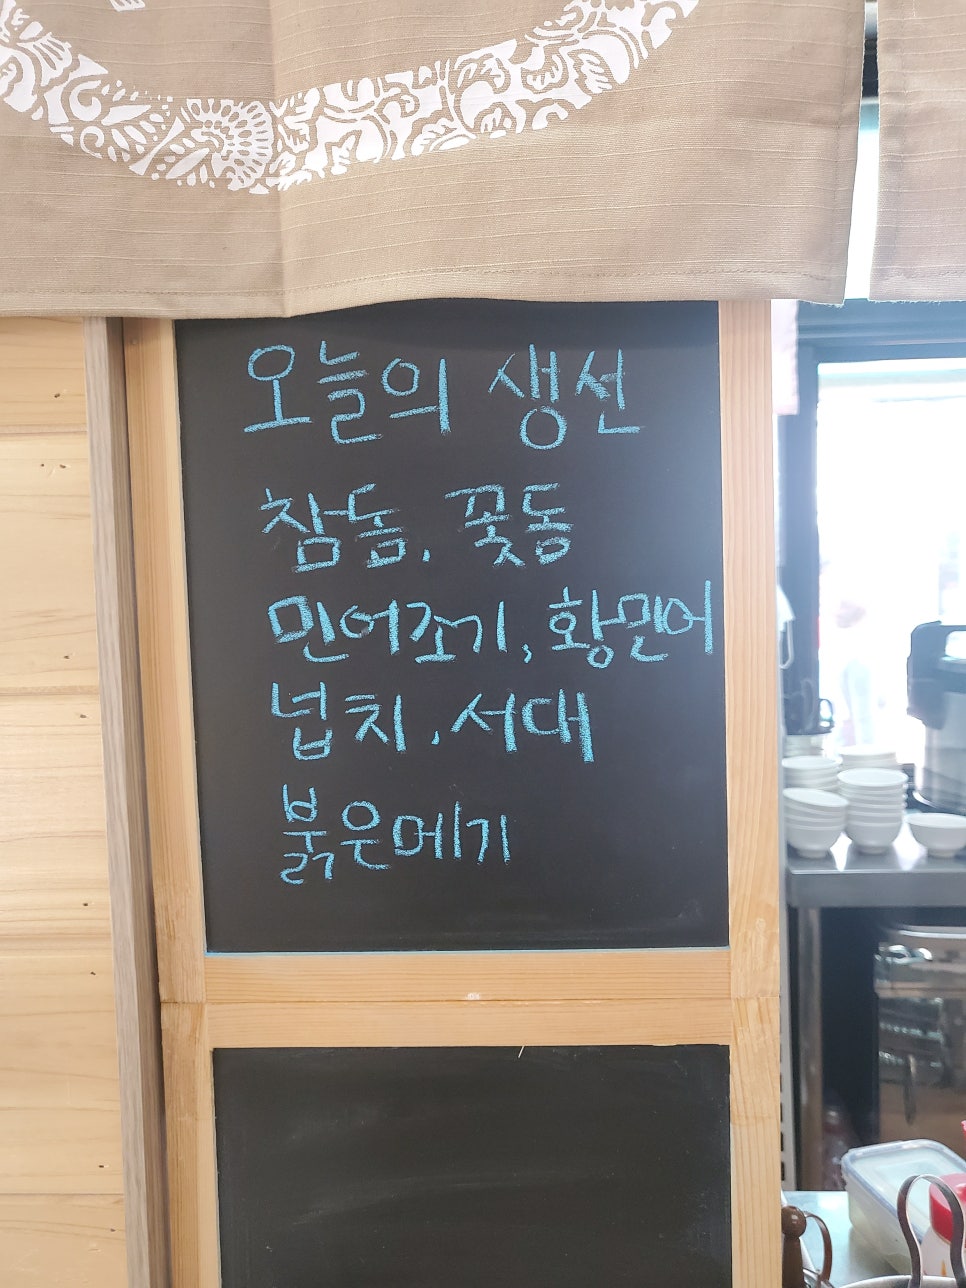 오늘의 생선
참돔, 꽃돔
민어조기, 황민어
넙치, 서대
붉은메기